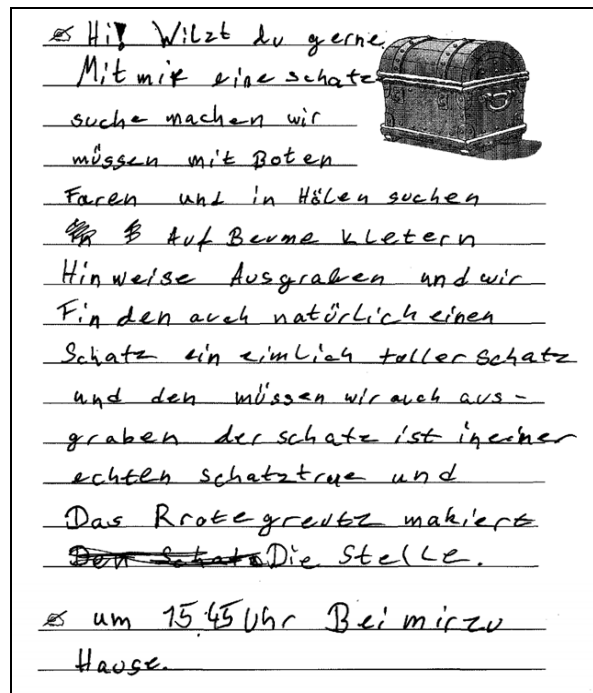 Hi! Wilzt du gerne
Mit mir eine schatz
suche machen wir
müssen mit Boten
Faren und in Hölen suchen
Auf Beume kletern
Hinweise Ausgraben und wir
Finden auch natürlich einen
Schatz ein eimlich toller schatz
und den müssen wir auch aus-
graben der schatz ist in einer
echten schatztrue und
Das Rrote greutz makiert
Die Stelle.
um 15.45 Uhr Bei mir zu
Hause.